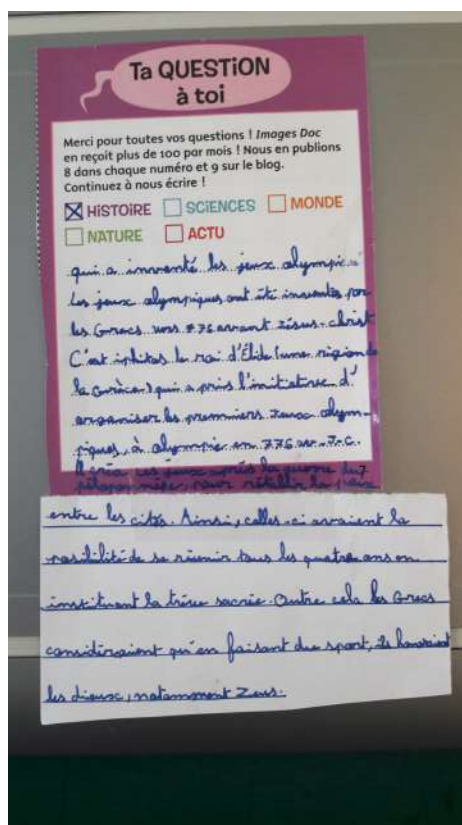 Ta QUESTiON
à toi
Merci pour toutes vos questions ! Images Doc
en reçoit plus de 100 par mois ! Nous en publions
8 dans chaque numéro et 9 sur le blog.
Continuez à nous écrire !
HiSTOiRE SCiENCES MONDE
NATURE ACTU
qui a inventé les jeux olympic
Les jeux olympiques ont été inventés par
les Grecs vers 776 avant Jésus-christ
C'est iphitos le roi d'Élide (une région de
la Grèce) qui a pris l'initiative d'
organiser les premmiers Jeux olym-
piques, à olympie en 776 av-J-C.
Il créa ces jeux après la guerre du
péloponnèse, pour rétablir la paix
entre les cités. Ainsi, celles-ci avaient la
posibilité de se réunir tous les quatre ans en
instituant la trève sacrée. Outre cela les Grecs
considéraient qu'en faisant du sport, ils honoraient
les dieux, notamment Zeus.